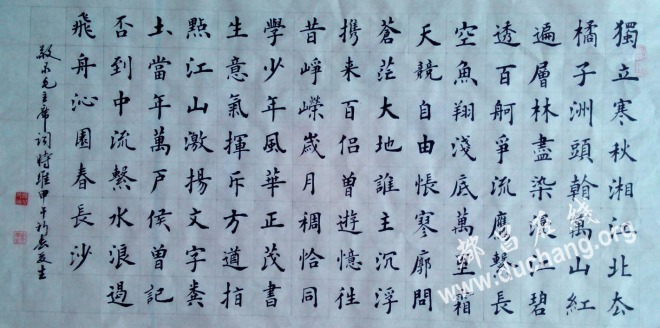 獨立寒秋湘江北去
橘子洲頭看萬山紅
遍層林盡染漫江碧
透百舸爭流鷹擊長
空魚翔淺底萬類霜
天競自由悵寥廓問
蒼茫大地誰主沉浮
携来百侣曾遊憶往
昔崢嶸歲月稠恰同
學少年風華正茂書
生意氣揮斥方遒指
點江山激揚文字糞
土當年萬戶侯曾記
否到中流擊水浪遏
飛舟沁園春長沙
敬录毛主席词時維甲午
都昌在线
www.duchang.org